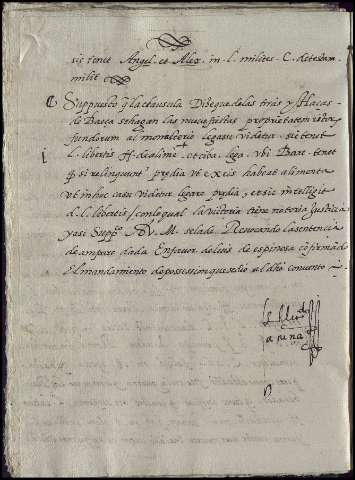 sic tenet Angel. et Alex. in l. milites C. de testam.
milit
Suppuesto q̃ la clausula Dize que delas tiras y
de Baeça se hagan las
fundorum al monasterio legasse videtur. sic tenet
l. libertis ff. de alime. et ciba. lega. vbi Bart. tenet
q̃ si relinquunt predia vt ex eis habeat alimenta
vt in hoc casu videtur legare predia, et sic intelligit
d. l. libertis / con lo qual la tiene notoria Justicia
y assi Supp.co A V. M. sela de Revocando la sentencia
de amparo dada En favor de luis de espinosa cõfirmãdo
El mandamiento de possession que se dio al dho convento